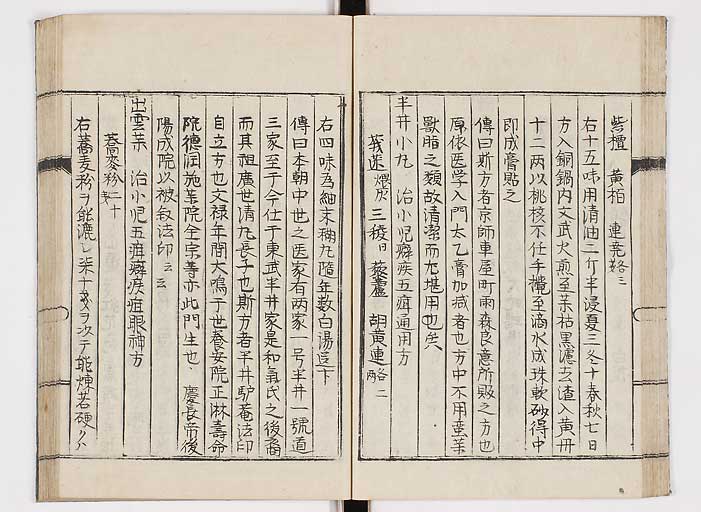 紫檀 黄栢 連翹各三
右十五味用清油二斤半浸夏三冬十春秋七日
方入銅鍋内文武火煎至薬枯黒濾去渣入黄丹
十二両以桃枝不住手攪至滴水成珠軟硬得中
即成膏貼之
傳曰斯方者京師車屋町雨森良意所販之方也
原依医学入門太乙膏加減者也方中不用葷薬
獣脂之類故清潔而尤堪用也矣
半井小丸 治小児癖疾五疳通用方
莪朮煨 三稜日 蘆薈 胡黄連各二両
右四味為細末糊丸隨年数白湯送下
傳曰本朝中世之医家有両家一号半井一號道
三家至于今仕于東武半井家是和氣氏之後裔
而其祖廣世清丸長子也斯方者半井驢菴法印
自立方也文禄年間大鳴于世養安院正琳壽命
院德潤施薬院全宗等亦此門生也 慶長帝後
陽成院以被叙法印云云
出雲薬 治小児五疳癖疾疽眼神方
蕎麥粉二十
右蕎麦粉ヲ能漉シ栄十ヲ次テ能煉若硬クハ